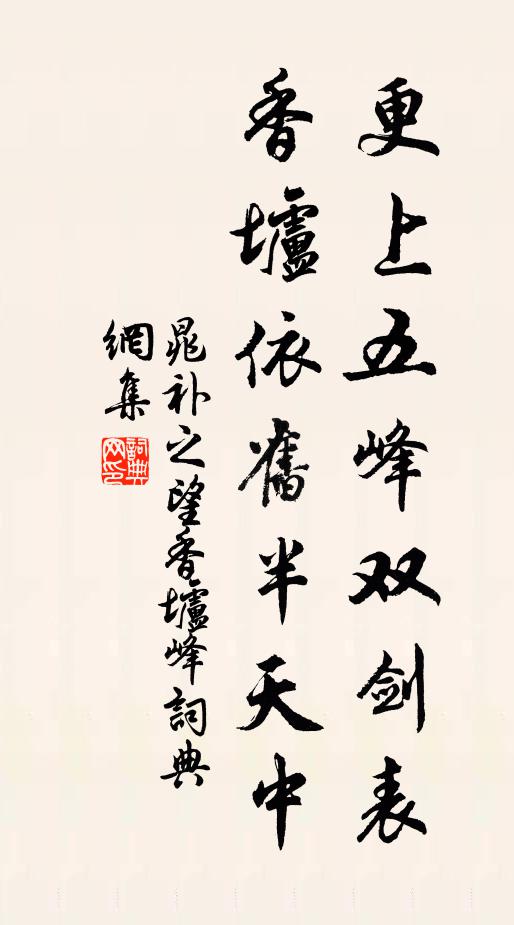 更上五峰双剑表
香壚依舊半天中
晁补之望香壚峰詞典
網集
詞典网印